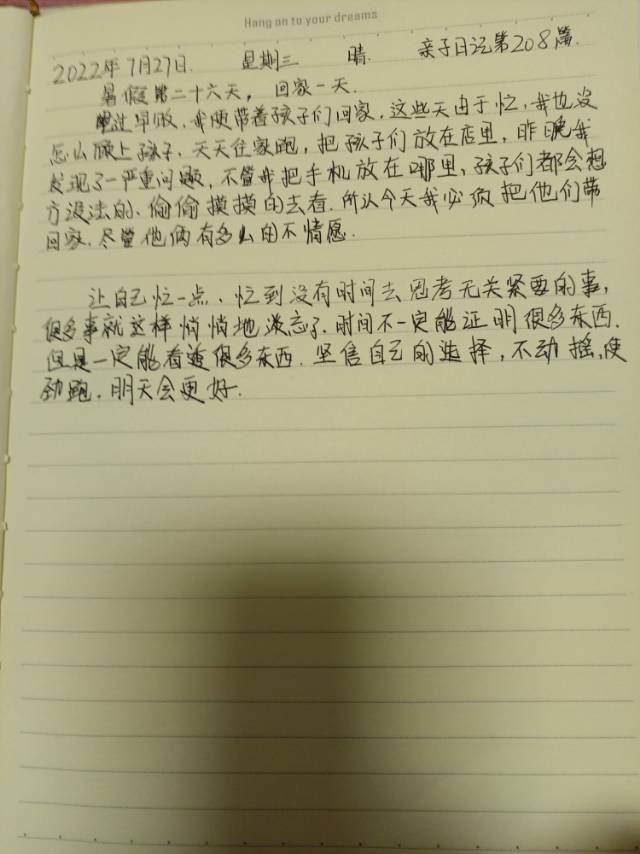 Hang on to your dreams
2022年7月27日. 星期三 晴. 亲子日记第208篇.
暑假第二十六天, 回家一天.
吃过早饭、我便带着孩子们回家,这些天由于忙,我也没
怎么顾上孩子、天天往家跑,把孩子们放在店里,昨晚我
发现了一严重问题,不管我把手机放在哪里,孩子们都会想
方没法的、偷偷摸摸的去看.所以今天我必须把他们带
回家.尽管他俩有多么的不情愿.
让自己忙一点、忙到没有时间去思考无关紧要的事,
很多事就这样悄悄地淡忘了.时间不一定能证明很多东西.
但是一定能看透很多东西.坚信自己的选择,不动摇,使
劲跑.明天会更好.